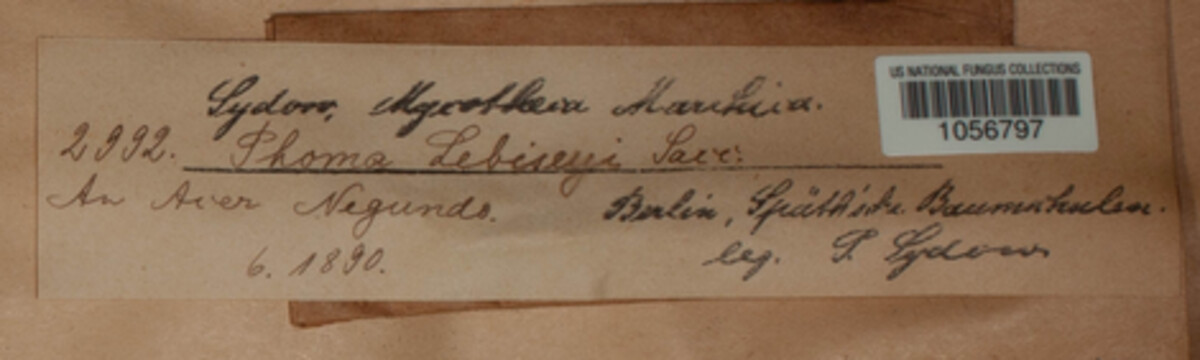 Sydow, Mycotheca Marchica.
2992. Phoma Lebiseyi Sacc.
An Acer Negundo. Berlin, Späth'sche Baumschulen.
6. 1890. leg. P. Sydow
US NATIONAL FUNGUS COLLECTIONS
1056797